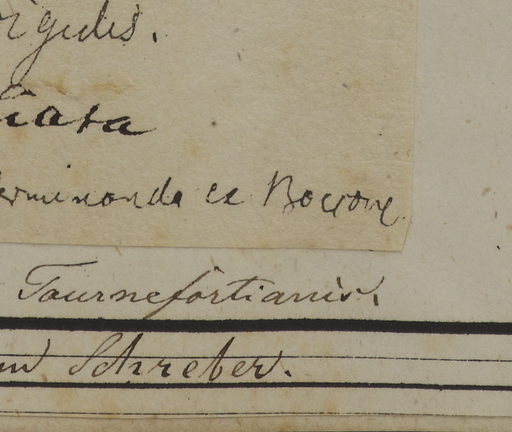 rigidis.
iata
erminanda ex Boccone
Tournefortianis.
Schreber.